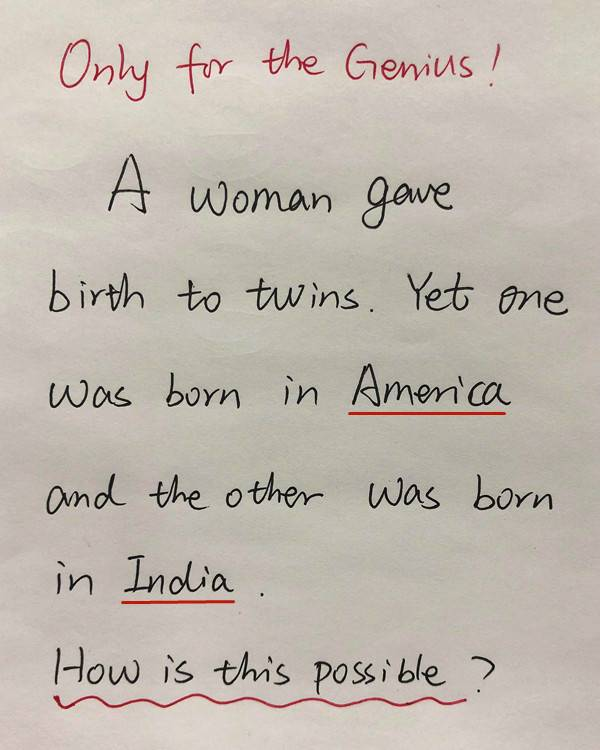 Only for the Genius!
A woman gave
birth to twins. Yet one
was born in America
and the other was born
in India.
How is this possible?